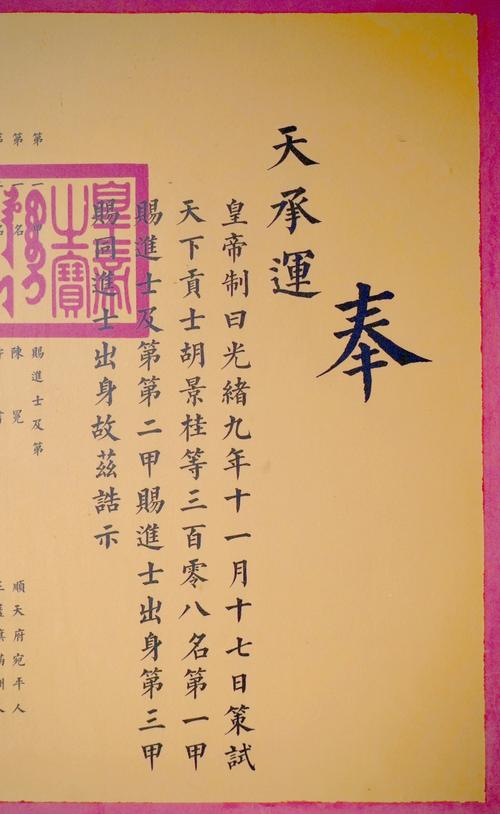 奉
天承運
皇帝制曰光緒九年十一月十七日策試
天下貢士胡景桂等三百零八名第一甲
賜進士及第第二甲賜進士出身第三甲
賜同進士出身故茲誥示
第一甲 賜進士及第
第一名 陳冕 順天府宛平人
之寶